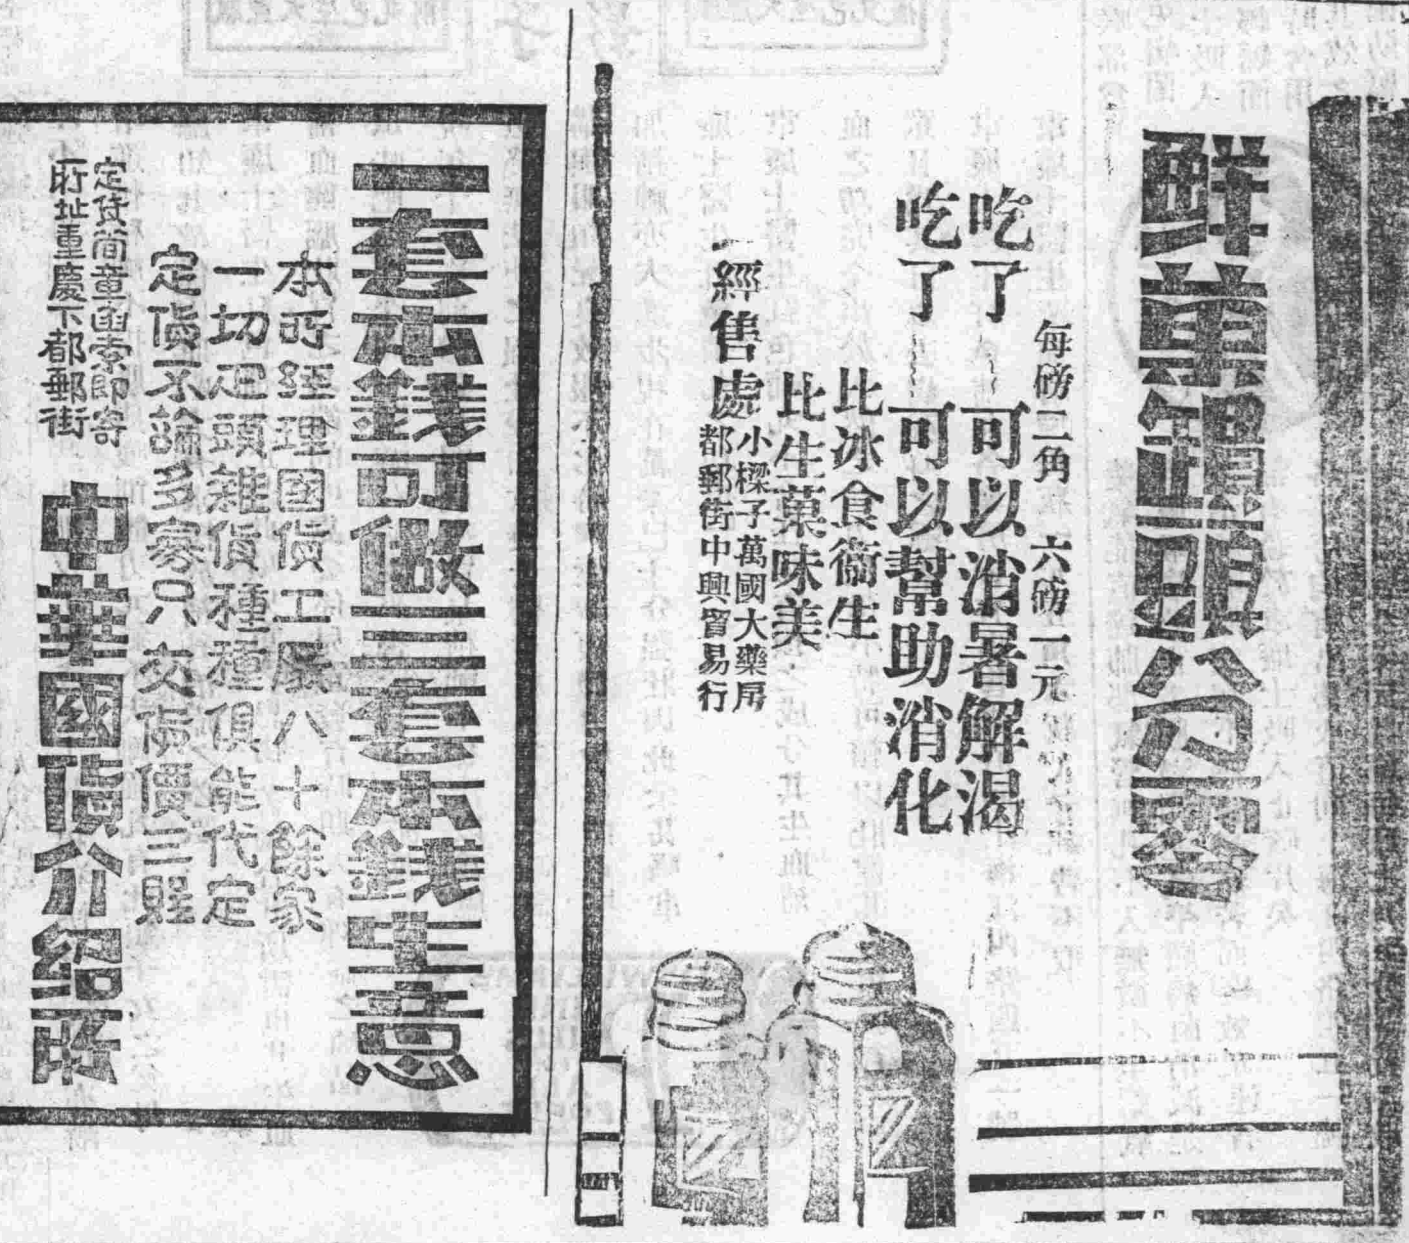 鮮菓罐頭八公零
每磅二角 六磅一元
吃了 可以消暑解渴
吃了 可以幫助消化
比冰食衞生
比生菓味美
經售處
小樑子萬國大藥房
都郵街中興貿易行
一套本錢可做三套本錢生意
本所經理國貨工厰八十餘家
一切疋頭雜貨種種俱能代定
定貨不論多寡只交貨價三
定貨簡章函索即寄
所址重慶下都郵街
中華國貨介紹所